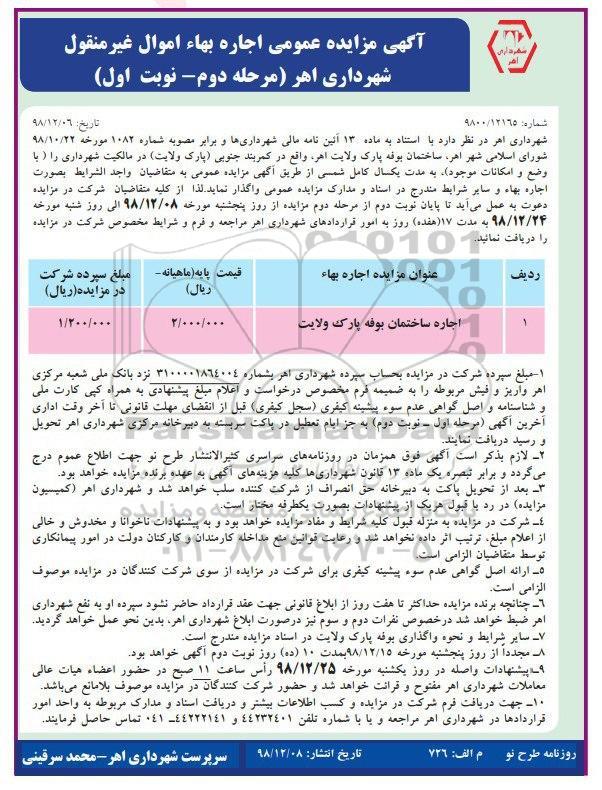 آگهی مزایده عمومی اجاره بهاء اموال غیرمنقول
شهرداری اهر (مرحله دوم- نوبت اول)
شهرداری
اهر
شماره: ۹۸۰۰/۱۲۱۶۵
تاریخ: ۹۸/۱۲/۰۶
شهرداری اهر در نظر دارد با استناد به ماده ۱۳ آئین نامه مالی شهرداری‌ها و برابر مصوبه شماره ۱۰۸۲ مورخه ۹۸/۱۰/۲۲
شورای اسلامی شهر اهر، ساختمان بوفه پارک ولایت اهر، واقع در کمربند جنوبی (پارک ولایت) در مالکیت شهرداری را ( با
وضع و امکانات موجود)، به مدت یکسال کامل شمسی از طریق آگهی مزایده عمومی به متقاضیان واجد الشرایط بصورت
اجاره بهاء و سایر شرایط مندرج در اسناد و مدارک مزایده عمومی واگذار نماید.لذا از کلیه متقاضیان شرکت در مزایده
دعوت به عمل می‌آید تا پایان نوبت دوم از مرحله دوم مزایده از روز پنجشنبه مورخه ۹۸/۱۲/۰۸ الی روز شنبه مورخه
۹۸/۱۲/۲۴ به مدت ۱۷(هفده) روز به امور قراردادهای شهرداری اهر مراجعه و فرم و شرایط مخصوص شرکت در مزایده
را دریافت نمائید.
ردیف
عنوان مزایده اجاره بهاء
قیمت پایه(ماهیانه-ریال)
مبلغ سپرده شرکت در مزایده(ریال)
۱
اجاره ساختمان بوفه پارک ولایت
۲/۰۰۰/۰۰۰
۱/۲۰۰/۰۰۰
۱-مبلغ سپرده شرکت در مزایده بحساب سپرده شهرداری اهر بشماره ۳۱۰۰۰۰۱۸۶۴۰۰۴ نزد بانک ملی شعبه مرکزی
اهر واریز و فیش مربوطه را به ضمیمه فرم مخصوص درخواست و اعلام مبلغ پیشنهادی به همراه کپی کارت ملی
و شناسنامه و اصل گواهی عدم سوء پیشینه کیفری (سجل کیفری) قبل از انقضای مهلت قانونی تا آخر وقت اداری
آخرین آگهی (مرحله اول ـ نوبت دوم) به جز ایام تعطیل در پاکت سربسته به دبیرخانه مرکزی شهرداری اهر تحویل
و رسید دریافت نمایند.
۲- لازم بذکر است آگهی فوق همزمان در روزنامه‌های سراسری کثیرالانتشار طرح نو جهت اطلاع عموم درج
می‌گردد و برابر تبصره یک ماده ۱۳ قانون شهرداری‌ها کلیه هزینه‌های آگهی به عهده برنده مزایده خواهد بود.
۳- بعد از تحویل پاکت به دبیرخانه حق انصراف از شرکت کننده سلب خواهد شد و شهرداری اهر (کمیسیون
مزایده) در رد یا قبول هریک از پیشنهادات بصورت یکطرفه مختار است.
۴- شرکت در مزایده به منزله قبول کلیه شرایط و مفاد مزایده خواهد بود و به پیشنهادات ناخوانا و مخدوش و خالی
از اعلام مبلغ، ترتیب اثر داده نخواهد شد و رعایت قوانین منع مداخله کارمندان و کارکنان دولت در امور پیمانکاری
توسط متقاضیان الزامی است.
۵ـ ارائه اصل گواهی عدم سوء پیشینه کیفری برای شرکت در مزایده از سوی شرکت کنندگان در مزایده موصوف
الزامی است.
۶ـ چنانچه برنده مزایده حداکثر تا هفت روز از ابلاغ قانونی جهت عقد قرارداد حاضر نشود سپرده او به نفع شهرداری
اهر ضبط خواهد شد درخصوص نفرات دوم و سوم نیز درصورت ابلاغ شهرداری اهر، بدین نحو عمل خواهد گردید.
۷ـ سایر شرایط و نحوه واگذاری بوفه پارک ولایت در اسناد مزایده مندرج است.
۸ـ مجددا از روز پنجشنبه مورخه ۹۸/۱۲/۱۵بمدت ۱۰ (ده) روز نوبت دوم آگهی خواهد بود.
۹ـ پیشنهادات واصله در روز یکشنبه مورخه ۹۸/۱۲/۲۵ رأس ساعت ۱۱ صبح در حضور اعضاء هیات عالی
معاملات شهرداری اهر مفتوح و قرائت خواهد شد و حضور شرکت کنندگان در مزایده موصوف بلامانع می‌باشد.
۱۰- جهت دریافت فرم شرکت در مزایده و کسب اطلاعات بیشتر و دریافت اسناد و مدارک مربوطه به واحد امور
قراردادها در شهرداری اهر مراجعه و یا با شماره تلفن ۴۴۲۳۲۴۰۱ و ۴۴۲۲۲۱۴۱ـ ۰۴۱ تماس حاصل فرمایند.
روزنامه طرح نو
م الف: ۷۲۶
تاریخ انتشار: ۹۸/۱۲/۰۸
سرپرست شهرداری اهر-محمد سرقینی
ParsNamadData
۰۲۱-۸۸۳۴۹۶۷۰-۵